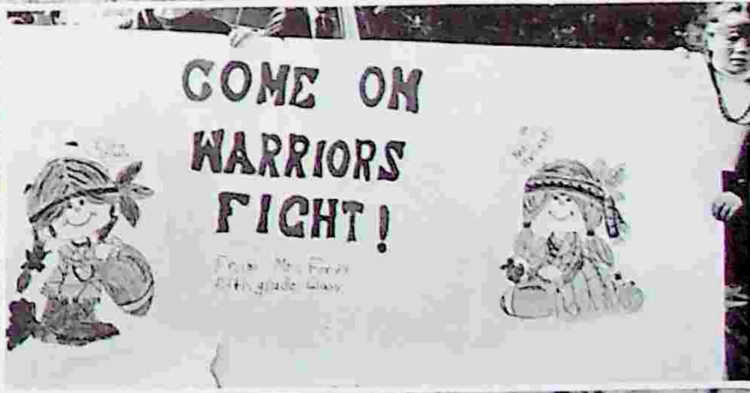 COME ON
WARRIORS
FIGHT!
From Mrs.
fifth grade class